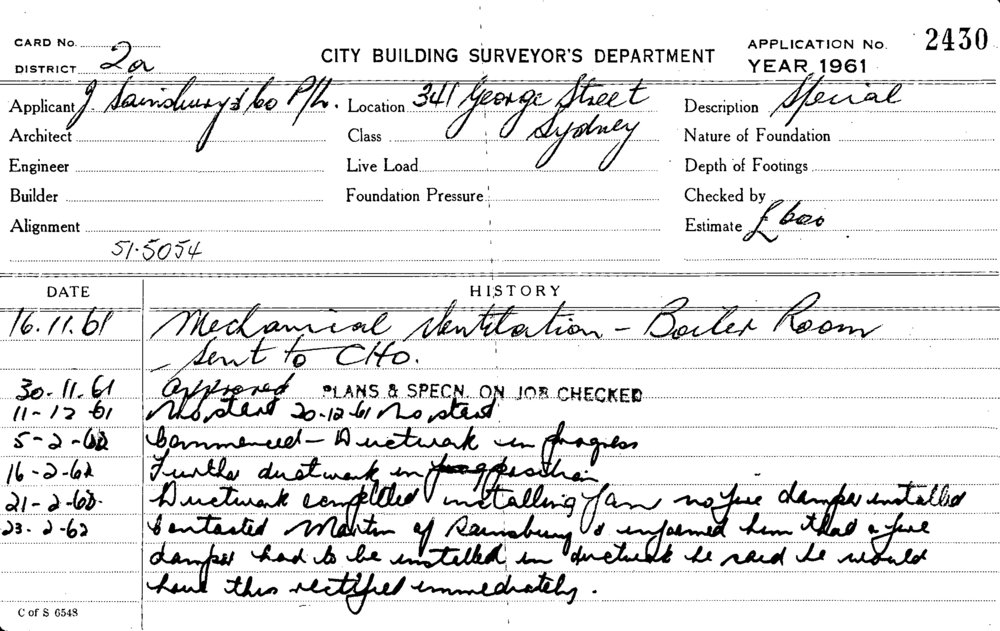 CARD No.
DISTRICT 2a
CITY BUILDING SURVEYOR'S DEPARTMENT
APPLICATION No. 2430
YEAR 1961
Applicant J Sainsbury & Co P/L. Location 341 George Street Description Special
Architect Class Sydney Nature of Foundation
Engineer Live Load Depth of Footings
Builder Foundation Pressure Checked by
Alignment Estimate £600
51·5054
DATE HISTORY
16.11.61 Mechanical Ventilation - Boiler Room
Sent to CHO.
30.11.61 Approved PLANS & SPECN. ON JOB CHECKED
11-12-61 No start 20-12-61 No start
5-2-62 Commenced - Ductwork in progress
16-2-62 Further ductwork in position
21-2-62 Ductwork completed installing fan no fire damper installed
23-2-62 Contacted Martin of Sainsbury & informed him that a fire
damper had to be installed in ductwork he said he would
have this rectified immediately.
C of S 6548